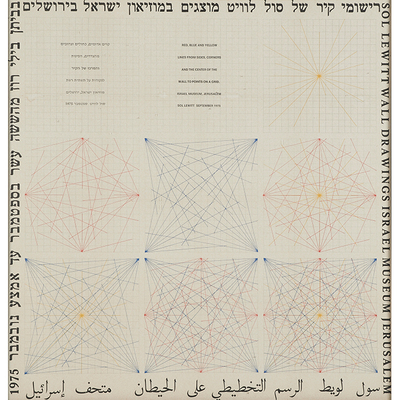 רישומי קיר של סול לוויט מוצגים במוזיאון ישראל בירושלים
SOL LEWITT WALL DRAWINGS ISRAEL MUSEUM JERUSALEM
RED, BLUE AND YELLOW
LINES FROM SIDES, CORNERS
AND THE CENTER OF THE
WALL TO POINTS ON A GRID.
ISRAEL MUSEUM, JERUSALEM
SOL LEWITT, SEPTEMBER 1975
سول لويط الرسم التخطيطي على الحيطان متحف إسرائيل
בביתן בילי רוז מששה עשר בספטמבר עד אמצע נובמבר 1975